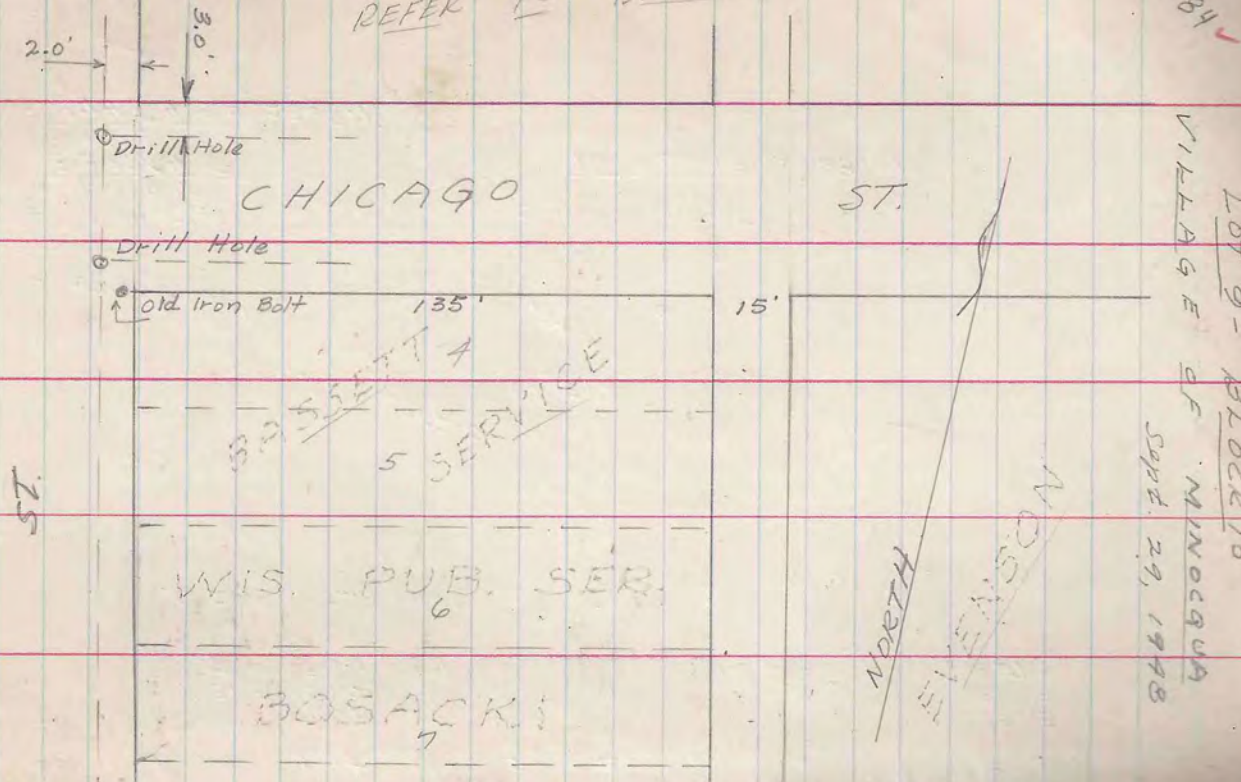 REFER
84
2.0'
3.0'
Drill Hole
CHICAGO ST.
Drill Hole
Old Iron Bolt
135'
15'
4
SERVICE
5
WIS. PUB. SER.
6
BOSACKI
7
NORTH
EVENSON
LOT 9 - BLOCK 10
VILLAGE OF MINOCQUA
Sept. 29, 1948